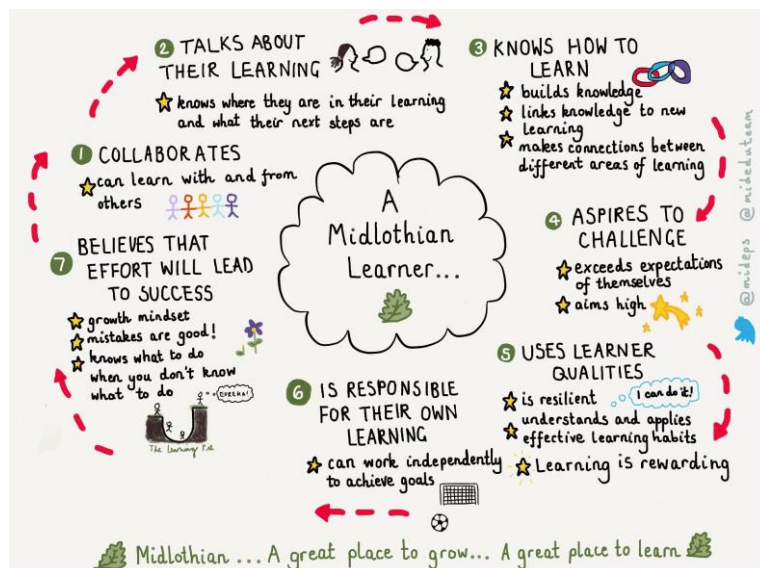 A
Midlothian
Learner...
1 COLLABORATES
can learn with and from
others
2 TALKS ABOUT
THEIR LEARNING
knows where they are in their learning
and what their next steps are
3 KNOWS HOW TO
LEARN
builds knowledge
links knowledge to new
learning
makes connections between
different areas of learning
4 ASPIRES TO
CHALLENGE
exceeds expectations
of themselves
aims high
5 USES LEARNER
QUALITIES
is resilient
I can do it!
understands and applies
effective learning habits
Learning is rewarding
6 IS RESPONSIBLE
FOR THEIR OWN
LEARNING
can work independently
to achieve goals
7 BELIEVES THAT
EFFORT WILL LEAD
TO SUCCESS
growth mindset
mistakes are good!
knows what to do
when you don't know
what to do
EUREKA!
The Learning Pit
@mideps @mideduteam
Midlothian ... A great place to grow... A great place to learn